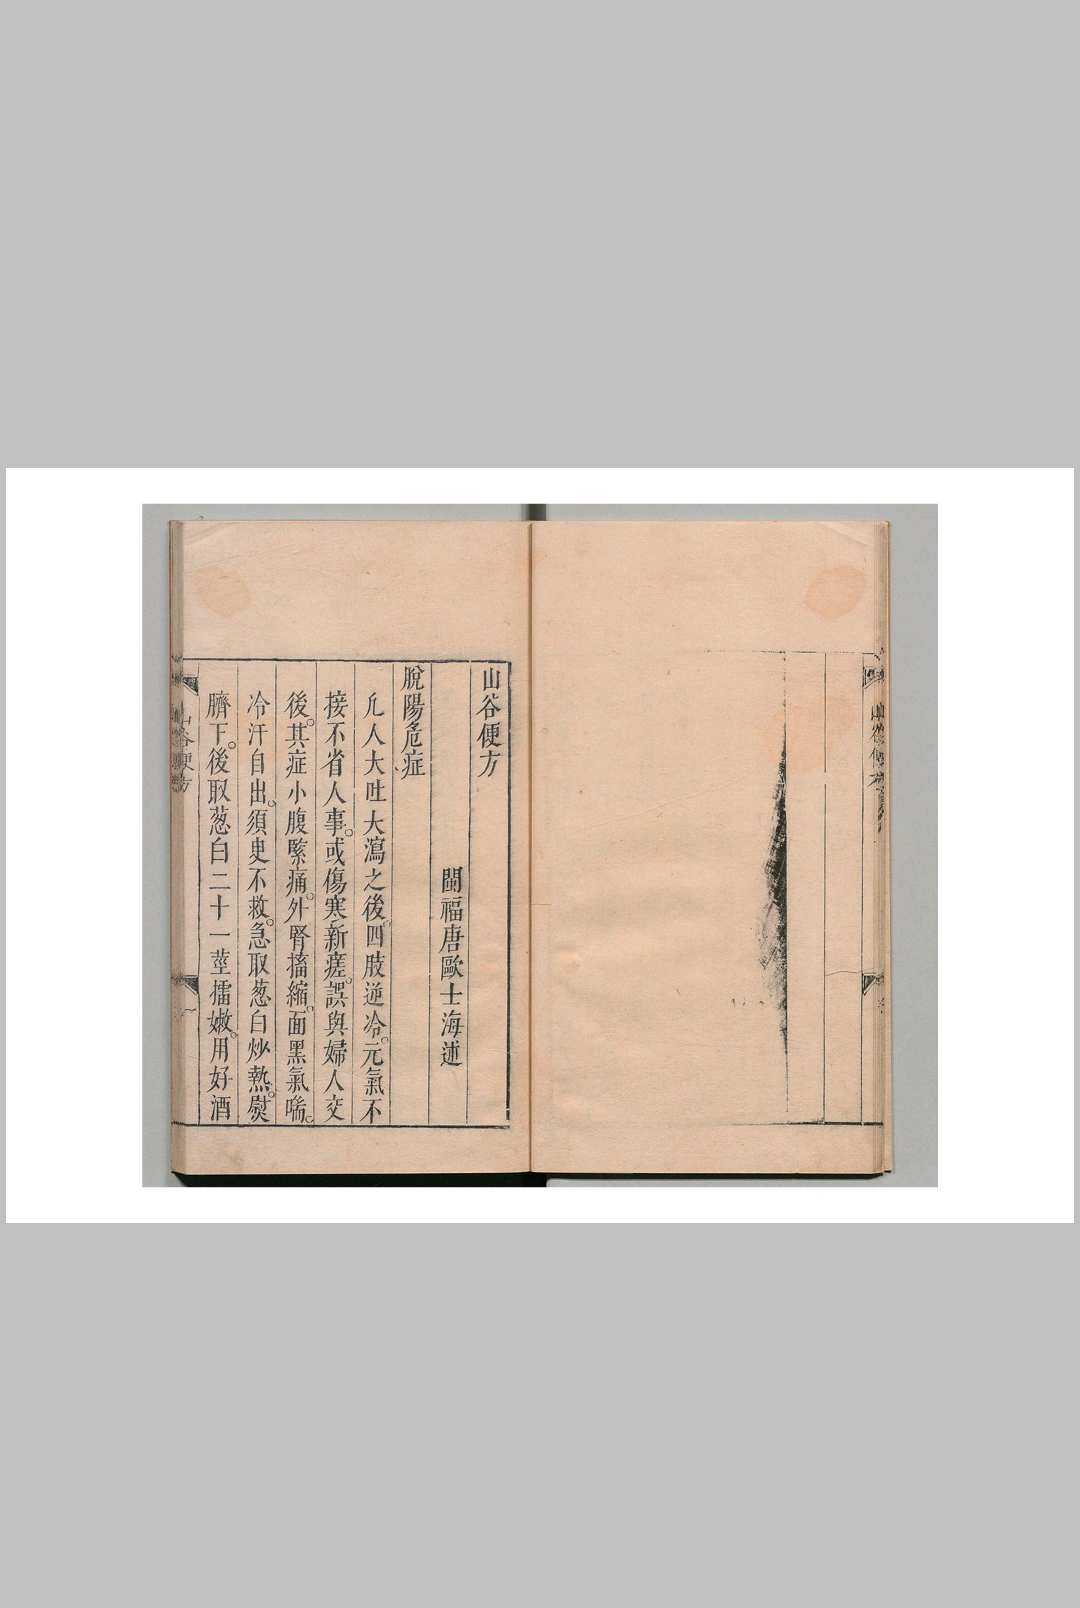 山谷便方
閩福唐歐士海述
脫陽危症
凡人大吐大瀉之後。四肢逆冷。元氣不
接不省人事。或傷寒新瘥。誤與婦人交
後。其症小腹緊痛。外腎搐縮。面黑氣喘。
冷汗自出。須臾不救。急取葱白炒熱。熨
臍下。後取葱白二十一莖擂嫩。用好酒
山谷便方
一